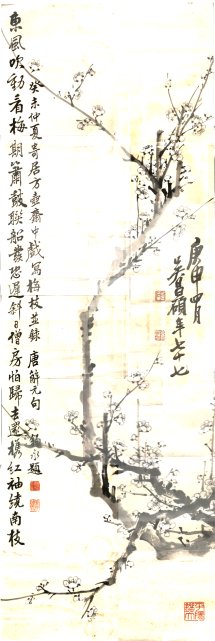 庚申四月
吳昌碩年七十七
東風吹動看梅期簫鼓聯船發恐遲斜日僧房怕歸去還攜紅袖繞南枝
癸未仲夏寄居方壺齋中戲寫梅枝並錄唐解元句題